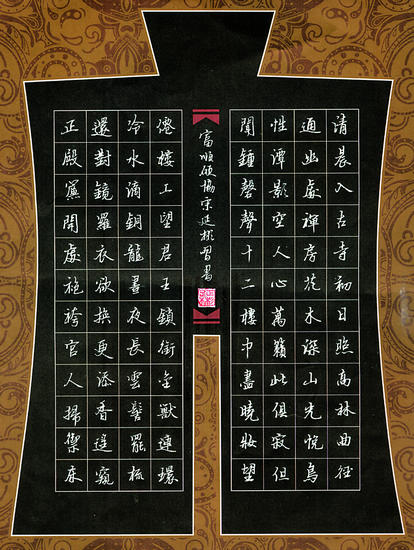 清晨入古寺初日照高林曲徑
通幽處禪房花木深山光悅鳥
性潭影空人心萬籟此俱寂但
聞鐘磬聲十二樓中盡曉妝望
富順硬協宗廷彬習書
僊樓上望君王鎖銜金獸連環
冷水滴銅龍晝夜長雲髻罷梳
還對鏡羅衣欲換更添香遥窺
正殿簾開處袍袴宮人掃禦床